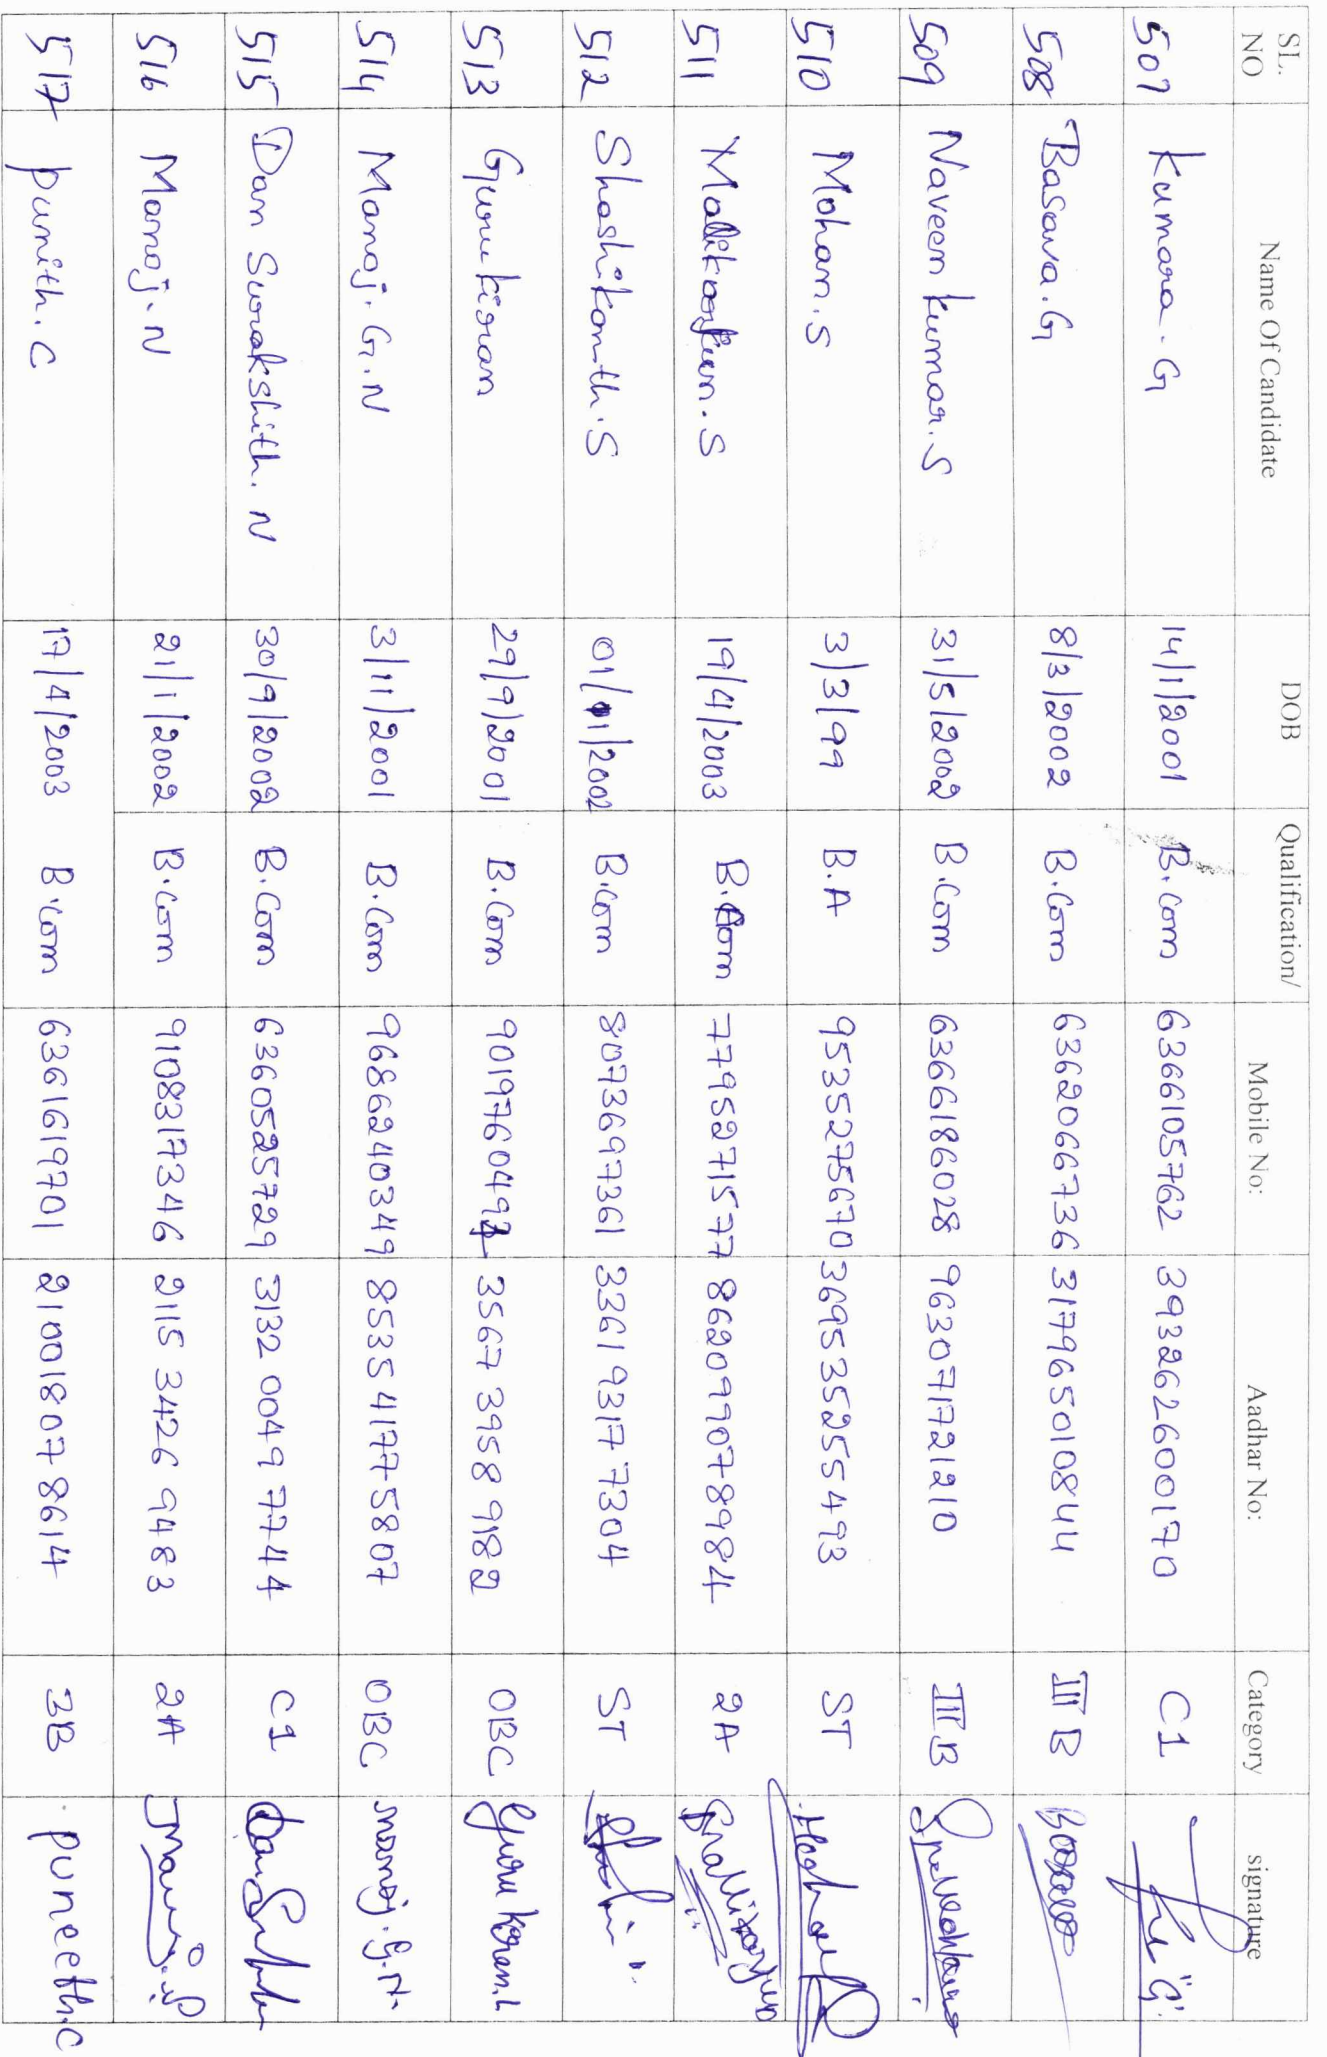 SL. NO Name Of Candidate DOB Qualification/ Mobile No: Aadhar No: Category signature
507 Kumara.G 14/1/2001 B.com 6366105762 393262600170 C1
508 Basava.G 8/3/2002 B.Com 6362066736 317965010844 III B
509 Naveen kumar.S 31/5/2002 B.Com 6366186028 963071721210 III B
510 Mohan.S 3/3/99 B.A 9535275670 369535255493 ST
511 Mallikarjun.S 19/4/2003 B.Com 7795271577 862099078984 2A
512 Shashikanth.S 01/01/2002 B.com 8073697361 3361 9317 7304 ST
513 Gurukiran 29/9/2001 B.Com 3567 3958 9182 OBC Guru kiran.L
514 Manoj.G.N 3/11/2001 B.Com 9686240349 8535 4177 5807 OBC. manoj.G.N.
515 Dan Surakshith.N 30/9/2002 B.Com 6360525729 3132 0049 7744 C1
516 Manoj.N 21/1/2002 B.Com 9108317346 2115 3426 9483 2A
517 punith.C 17/4/2003 B.com 6361619701 210018078614 3B puneeth.c